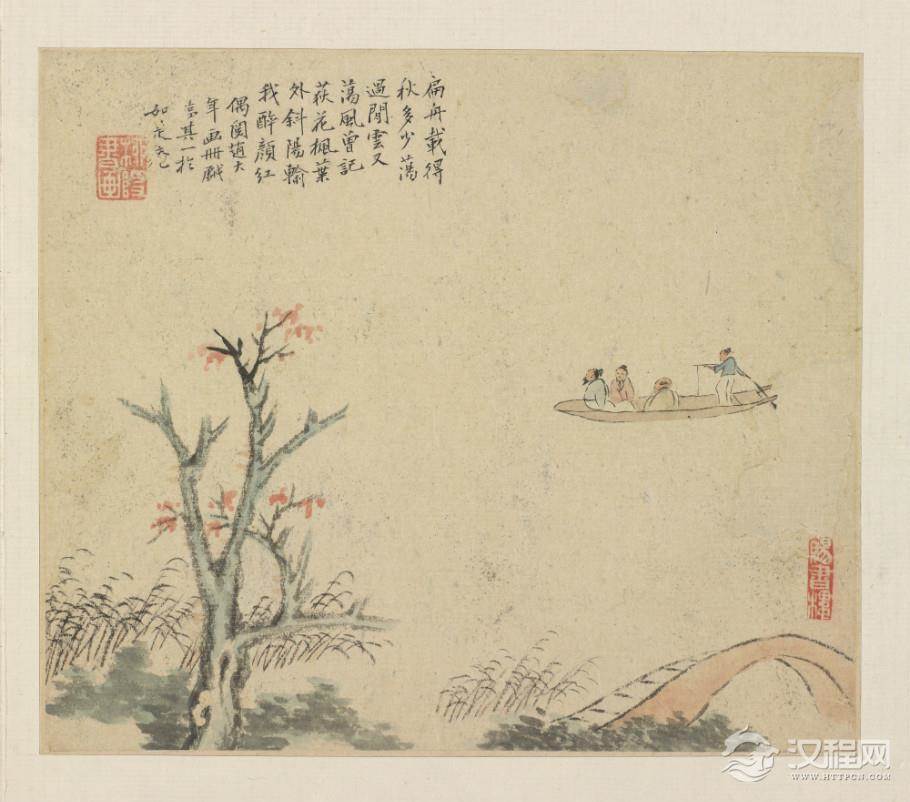 扁舟載得
秋多少蕩
過閒雲又
蕩風曾記
荻花楓葉
外斜陽輸
我醉顏紅
偶閱趙大
年画冊戲
其一於
如是
柳隱書畫
賜書樓
汉程网
WWW.HTTPCN.COM